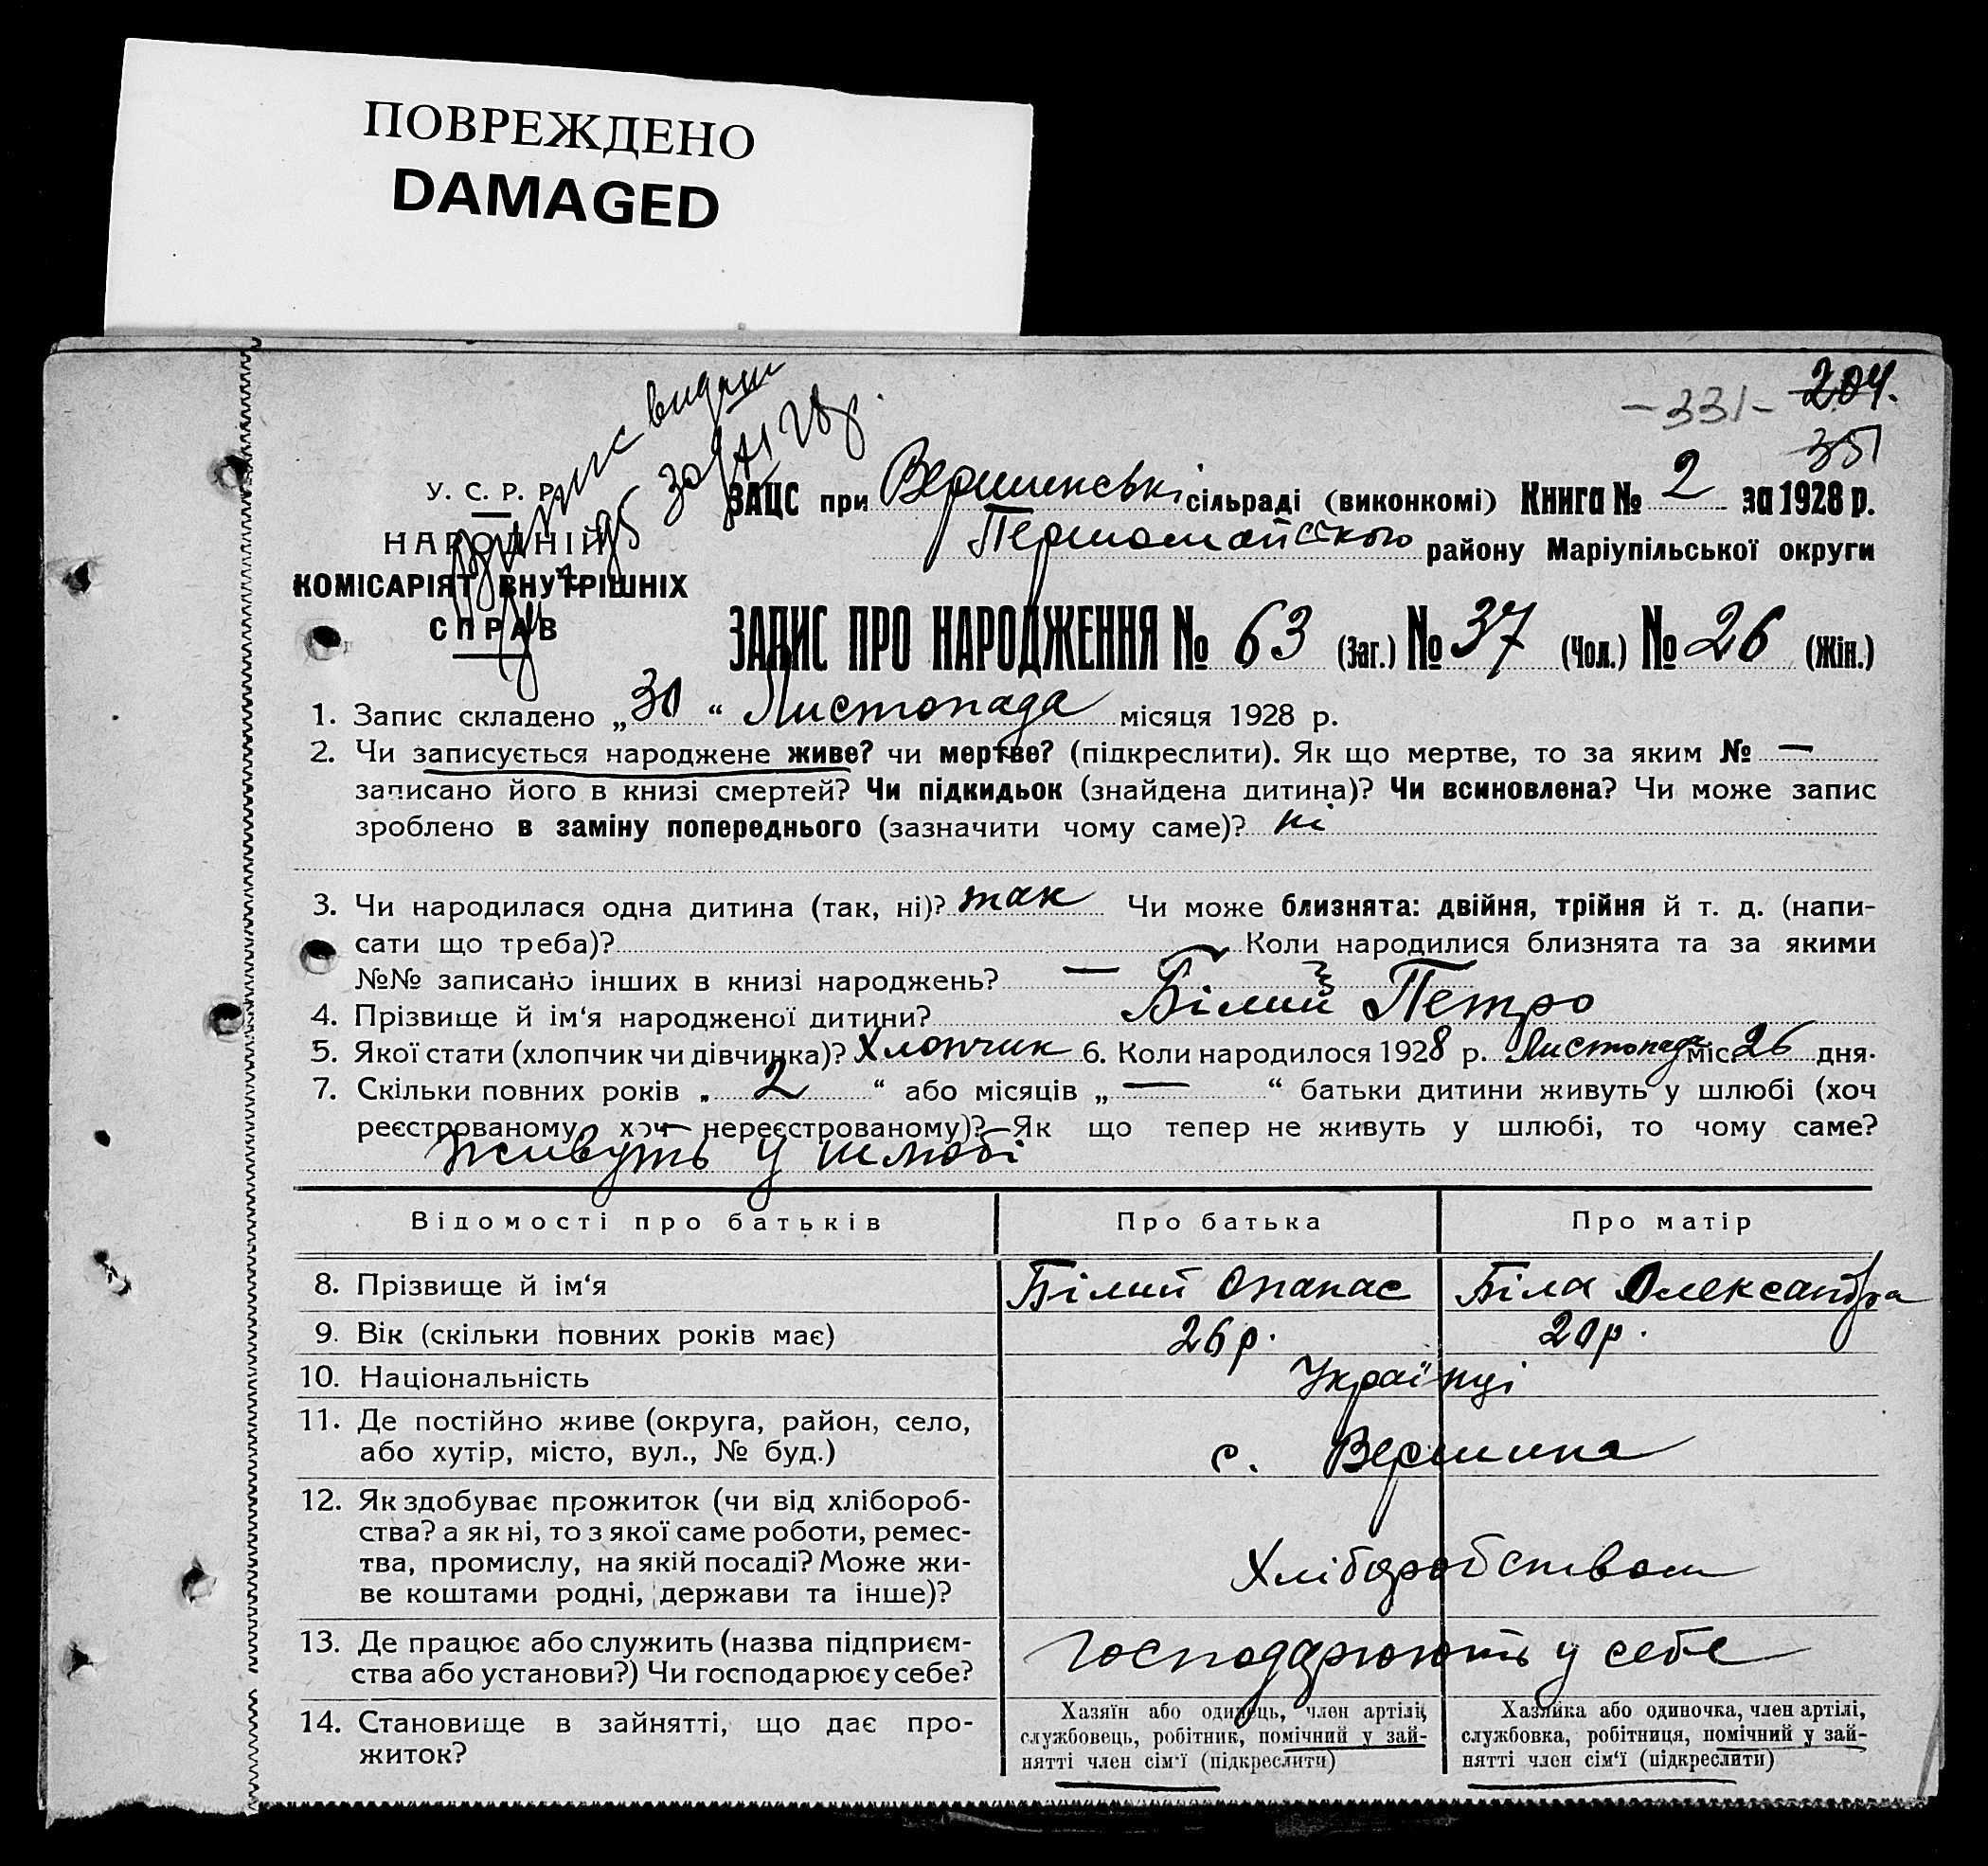 ПОВРЕЖДЕНО
DAMAGED
-331- 204.
351
У. С. Р. Р.
НАРОДНІЙ
КОМІСАРІЯТ ВНУТРІШНІХ
СПРАВ
видан
ЗАЦС при Вершинські сільраді (виконкомі) Книга № 2 за 1928 р.
Першомайського району Маріупільської округи
ЗАПИС ПРО НАРОДЖЕННЯ № 63 (Заг.) № 37 (Чол.) № 26 (Жін.)
1. Запис складено „30“ Листопада місяця 1928 р.
2. Чи записується народжене живе? чи мертве? (підкреслити). Як що мертве, то за яким № —
записано його в книзі смертей? Чи підкидьок (знайдена дитина)? Чи всиновлена? Чи може запис
зроблено в заміну попереднього (зазначити чому саме)? ні
3. Чи народилася одна дитина (так, ні)? так Чи може близнята: двійня, трійня й т. д. (напи-
сати що треба)? Коли народилися близнята та за якими
№№ записано інших в книзі народжень? —
4. Прізвище й ім‘я народженої дитини? Білий Петро
5. Якої стати (хлопчик чи дівчинка)? Хлопчик 6. Коли народилося 1928 р. Листопада міс. 26 дня.
7. Скільки повних років „ 2 “ або місяців „ — “ батьки дитини живуть у шлюбі (хоч
реєстрованому, хоч нереєстрованому)? Як що тепер не живуть у шлюбі, то чому саме?
Живуть у шлюбі
Відомості про батьків Про батька Про матір
8. Прізвище й ім‘я Білий Опанас Біла Олександра
9. Вік (скільки повних років має) 26 р. 20 р.
10. Національність Українці
11. Де постійно живе (округа, район, село,
або хутір, місто, вул., № буд.) с. Вершина
12. Як здобуває прожиток (чи від хлібороб-
ства? а як ні, то з якої саме роботи, ремес-
тва, промислу, на якій посаді? Може жи-
ве коштами родні, держави та інше)? Хліборобством
13. Де працює або служить (назва підприєм-
ства або установи?) Чи господарює у себе? Господарюють у себе
14. Становище в зайнятті, що дає про-
житок?
Хазяїн або одинець, член артілі,
службовець, робітник, помічний у зай-
нятті член сім‘ї (підкреслити)
Хазяйка або одиночка, член артілі,
службовка, робітниця, помічний у зай-
нятті член сім‘ї (підкреслити)